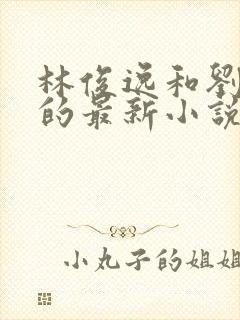 林俊逸和劉
的最新小說
小丸子的姐姐